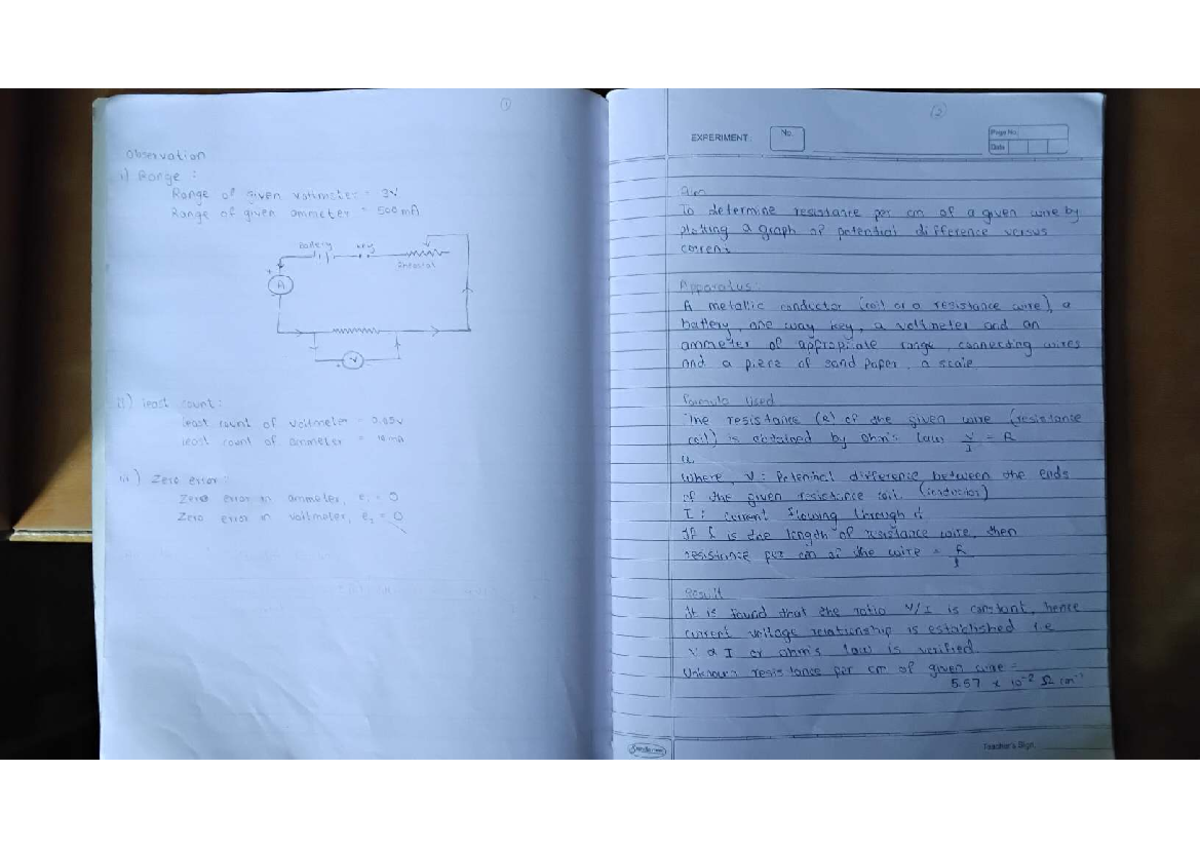 ①
Observation
i) Range :
Range of given voltmeter = 3V
Range of given ammeter = 500 mA
Battery
key
Rheostat
+
A
V
+
ii) least count :
least count of voltmeter = 0.05V
least count of ammeter = 10 mA
iii) Zero error :
Zero error in ammeter, e₁ = 0
Zero error in voltmeter, e₂ = 0
②
EXPERIMENT
No.
Page No.
Date
Aim
To determine resistance per cm of a given wire by
plotting a graph of potential difference versus
Apparatus :
A metallic conductor (coil or a resistance wire), a
battery, one way key, a voltmeter and an
ammeter of appropriate range, connecting wires
and a piece of sand paper, a scale.
Formula Used
The resistance (R) of the given wire (resistance
coil) is obtained by ohm's law V/I = R
Where, V : Potenincl difference between the ends
of the given resistance coil. (conductor)
I : current flowing through it
If l is the length of resistance wire, then
resistance per cm of the wire = R/l
Result
It is found that the ratio V/I is constant, hence
current voltage relationship is established i.e
V α I or ohm's law is verified.
Unknown resistance per cm of given wire =
5.57 x 10⁻² Ω cm⁻¹
Sundaram
Teacher's Sign.